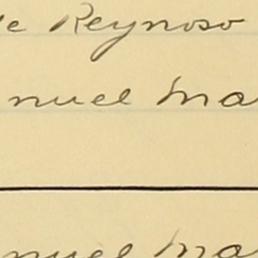 de Reynoso
nuel Ma
nuel Ma